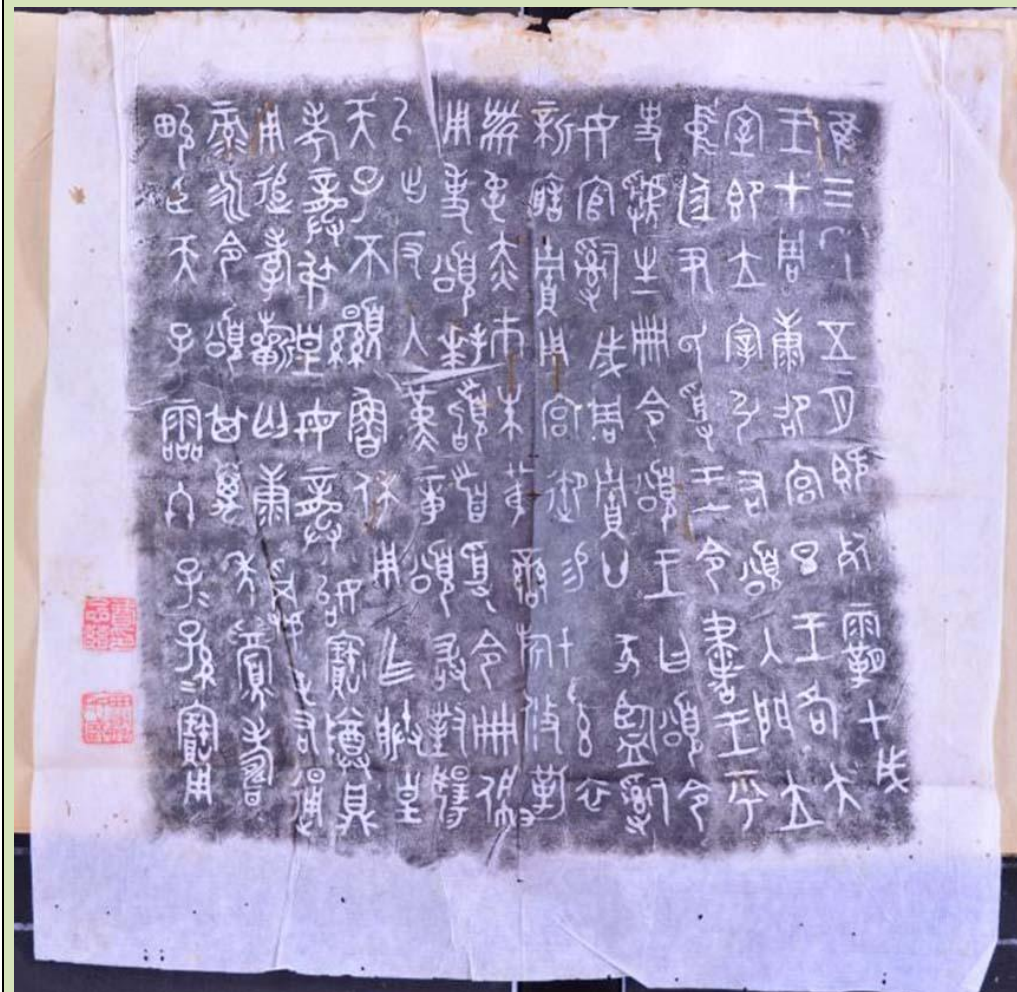 隹三年五月既死霸甲戌
王才周康卲宮旦王各大
室即立宰引右頌入門立
中廷尹氏受王令書王乎
史虢生冊令頌王曰頌令
女官𤔲成周貯廿家監𤔲
新造貯用宮御易女玄衣
黹屯赤巿朱黃䜌旂攸勒
用事頌拜𩒨首受令冊佩
以出反入堇章頌敢對揚
天子不顯魯休用乍朕皇
考龏弔皇母龏始寶尊鼎
用追孝匄康屯右通
彔永令頌其萬年眉壽
畯臣天子霝冬子=孫=寶用